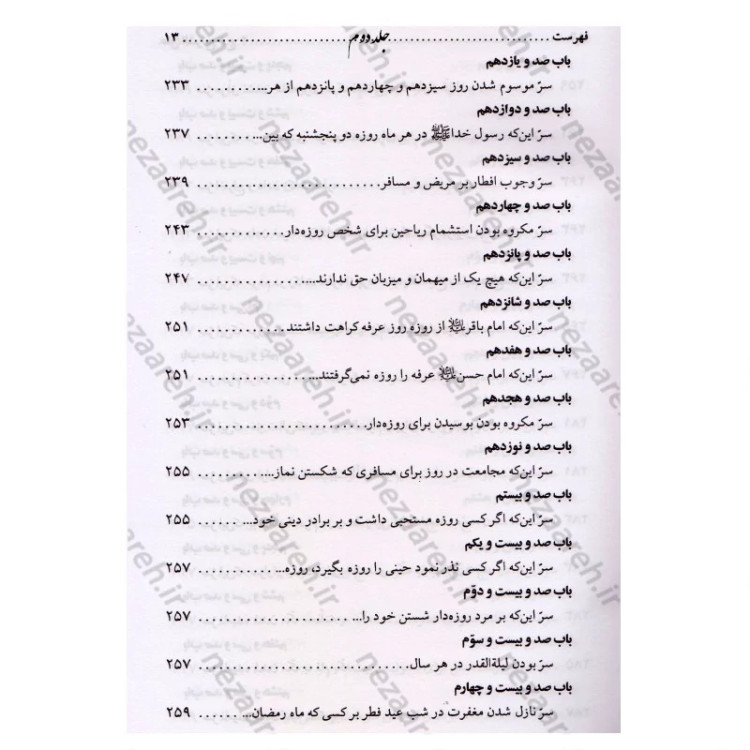 فهرست .......................... جلد دوم .......................... ۱۳
باب صد و یازدهم
سرّ موسوم شدن روز سیزدهم و چهاردهم و پانزدهم از هر... ......... ۲۳۳
باب صد و دوازدهم
سرّ این‌که رسول خداﷺ در هر ماه روزه دو پنجشنبه که بین... ........ ۲۳۷
باب صد و سیزدهم
سرّ وجوب افطار بر مریض و مسافر............................ ۲۳۹
باب صد و چهاردهم
سرّ مکروه بودن استشمام ریاحین برای شخص روزه‌دار............. ۲۴۳
باب صد و پانزدهم
سرّ این‌که هیچ یک از میهمان و میزبان حق ندارند... ............ ۲۴۷
باب صد و شانزدهم
سرّ این‌که امام باقر از روزه روز عرفه کراهت داشتند............. ۲۵۱
باب صد و هفدهم
سرّ این‌که امام حسن عرفه را روزه نمی‌گرفتند... ................ ۲۵۱
باب صد و هجدهم
سرّ مکروه بودن بوسیدن برای روزه‌دار......................... ۲۵۳
باب صد و نوزدهم
سرّ این‌که مجامعت در روز برای مسافری که شکستن نماز... ......... ۲۵۵
باب صد و بیستم
سرّ این‌که اگر کسی روزه مستحبی داشت و بر برادر دینی خود... ...... ۲۵۵
باب صد و بیست و یکم
سرّ این‌که اگر کسی نذر نمود حینی را روزه بگیرد، روزه... .......... ۲۵۷
باب صد و بیست و دوّم
سرّ این‌که بر مرد روزه‌دار شستن خود را... ..................... ۲۵۷
باب صد و بیست و سوّم
سرّ بودن لیلةالقدر در هر سال............................... ۲۵۷
باب صد و بیست و چهارم
سرّ نازل شدن مغفرت در شب عید فطر بر کسی که ماه رمضان... ....... ۲۵۹
nezaareh.ir